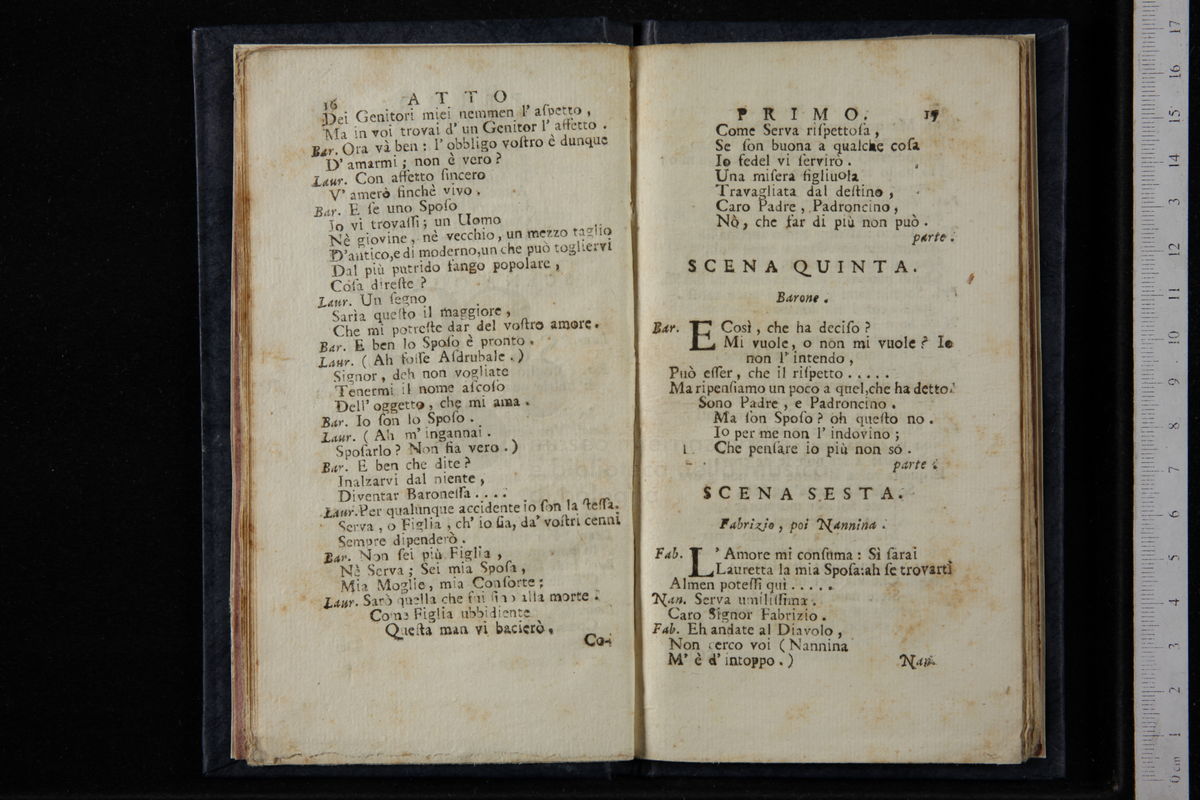 16 ATTO
Dei Genitori miei nemmen l' aſpetto ,
Ma in voi trovai d' un Genitor l' affetto .
Bar. Ora và ben : l' obbligo voſtro è dunque
D' amarmi ; non è vero ?
Laur. Con affetto ſincero
V' amerò finchè vivo .
Bar. E ſe uno Spoſo
Io vi trovaſſi ; un Uomo
Nè giovine , nè vecchio , un mezzo taglio
D'antico,e di moderno,un che può togliervi
Dal più putrido fango popolare ,
Coſa direſte ?
Laur. Un ſegno
Sarìa queſto il maggiore ,
Che mi potreſte dar del voſtro amore .
Bar. E ben lo Spoſo è pronto .
Laur. ( Ah foſſe Aſdrubale . )
Signor , deh non vogliate
Tenermi il nome aſcoſo
Dell' oggetto , che mi ama .
Bar. Io ſon lo Spoſo .
Laur. ( Ah m' ingannai .
Spoſarlo ? Non ſia vero . )
Bar. E ben che dite ?
Inalzarvi dal niente ,
Diventar Baroneſſa . . . .
Laur.Per qualunque accidente io ſon la ſteſſa.
Serva , o Figlia , ch' io ſia, da' voſtri cenni
Sempre dipenderò .
Bar. Non ſei più Figlia ,
Nè Serva ; Sei mia Spoſa ,
Mia Moglie , mia Conſorte ;
Laur. Sarò quella che fui ſino alla morte .
Come Figlia ubbidiente
Queſta man vi bacierò ,
Co-
PRIMO. 17
Come Serva riſpettoſa ,
Se ſon buona a qualche coſa
Io fedel vi ſervirò .
Una miſera figliuola
Travagliata dal deſtino ,
Caro Padre , Padroncino ,
Nò , che far di più non può .
parte .
SCENA QUINTA .
Barone .
Bar. E Così , che ha deciſo ?
Mi vuole , o non mi vuole ? Io
non l' intendo ,
Può eſſer , che il riſpetto . . . . .
Ma ripenſiamo un poco a quel,che ha detto.
Sono Padre , e Padroncino .
Ma ſon Spoſo ? oh queſto no .
Io per me non l' indovino ;
Che penſare io più non sò .
parte .
SCENA SESTA .
Fabrizio , poi Nannina .
Fab. L' Amore mi conſuma : Sì ſarai
Lauretta la mia Spoſa:ah ſe trovarti
Almen poteſſi qui . . . . .
Nan. Serva umiliſſima .
Caro Signor Fabrizio .
Fab. Eh andate al Diavolo ,
Non cerco voi ( Nannina
M' è d' intoppo . )
Nan.